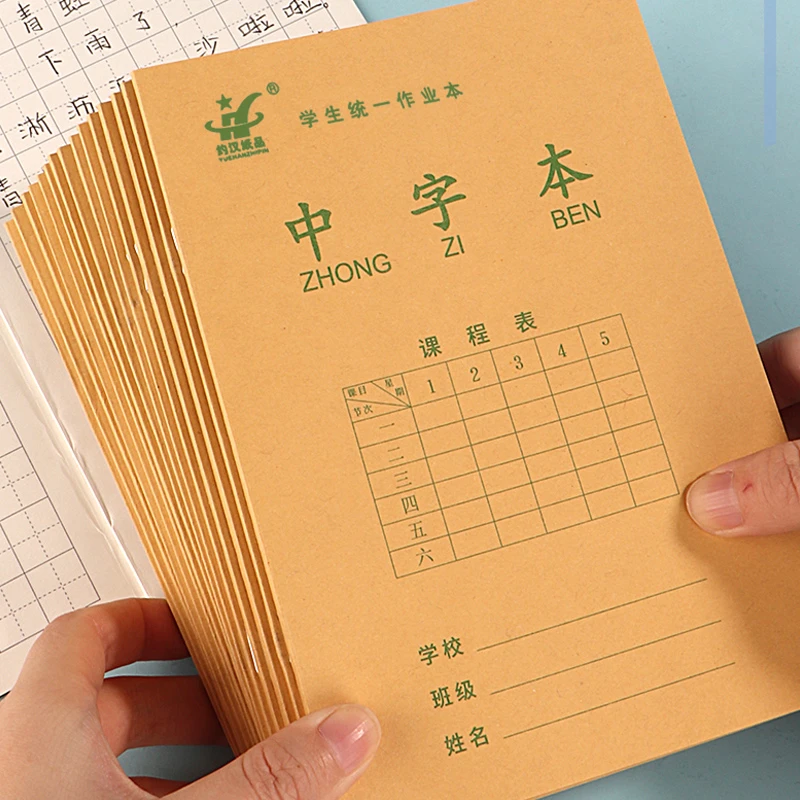 青蛙
下雨了
沙啦啦
淅沥
青
®
钓汉纸品
YUEHANZHIPIN
学生统一作业本
中字本
ZHONG ZI BEN
课程表
课目 星期 节次 1 2 3 4 5
一
二
三
四
五
六
学校
班级
姓名